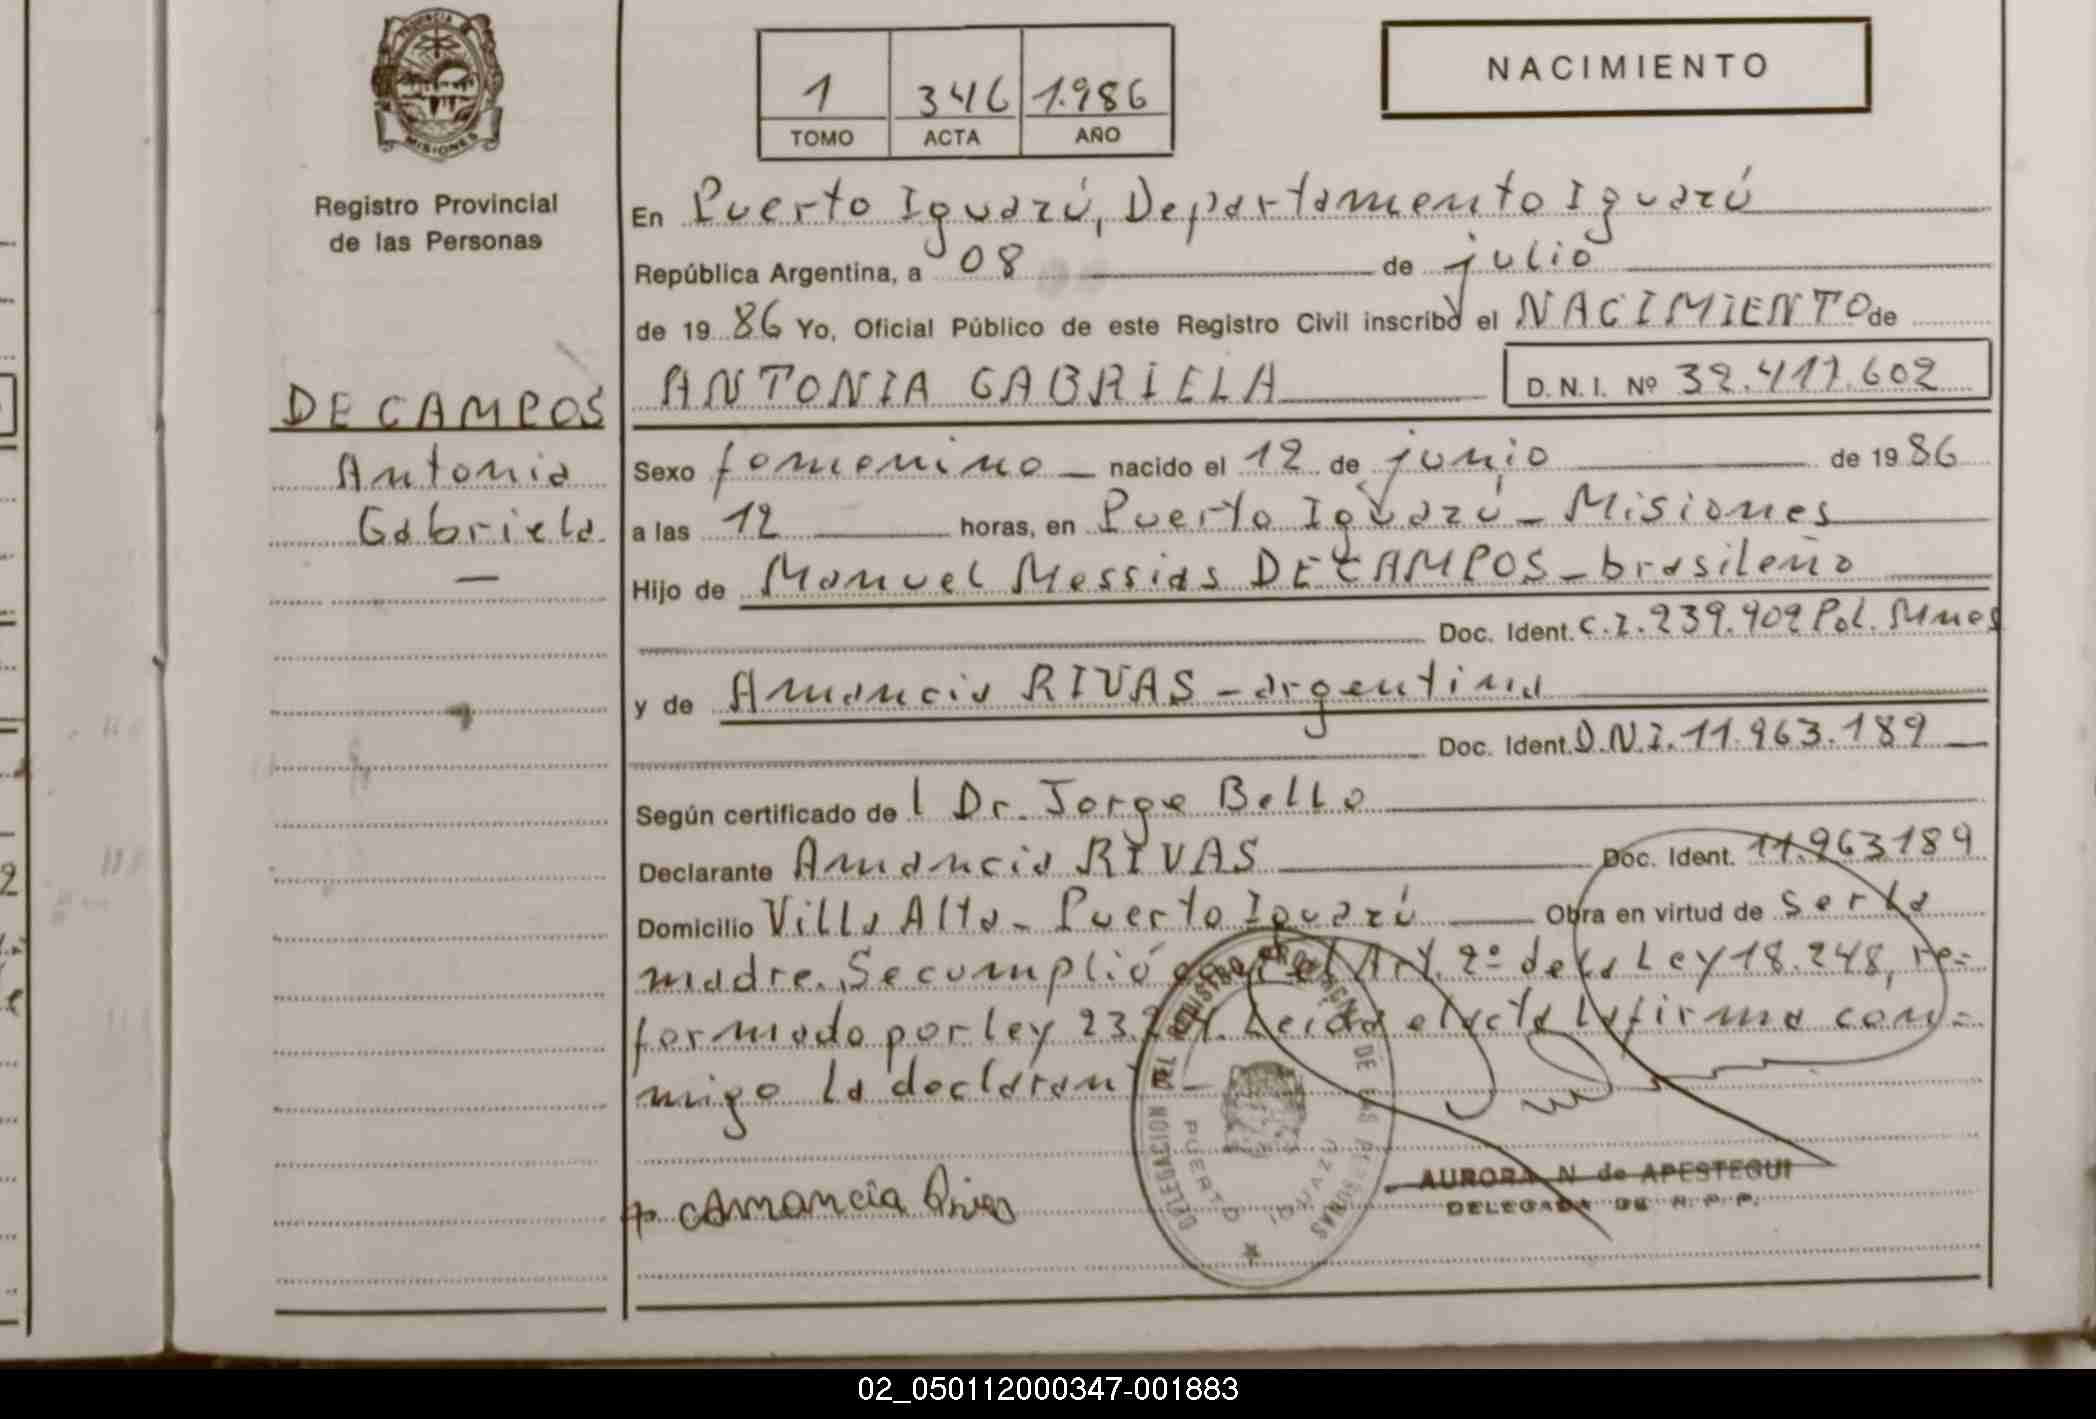 PROVINCIA
MISIONES
Registro Provincial
de las Personas
DE CAMPOS
Antonia
Gabriela
1 346 1.986
TOMO ACTA AÑO
NACIMIENTO
En Puerto Iguazú, Departamento Iguazú
República Argentina, a 08 de julio
de 19 86 Yo, Oficial Público de este Registro Civil inscribo el NACIMIENTO de
ANTONIA GABRIELA D. N. I. Nº 32.417.602
Sexo femenino nacido el 12 de junio de 19 86
a las 12 horas, en Puerto Iguazú - Misiones
Hijo de Manuel Messias DE CAMPOS - brasileño
Doc. Ident. C.I. 239.902 Pol. Mnes
y de Amancia RIVAS - argentina
Doc. Ident. D.N.I. 11.963.189
Según certificado de l Dr. Jorge Bello
Declarante Amancia RIVAS Doc. Ident. 11.963189
Domicilio Villa Alta - Puerto Iguazú Obra en virtud de ser la
madre. Se cumplió el Art. 2º de la Ley 18.248, re=
formado por ley Leida el acta la firma con=
migo la declarante
Amancia Rivas
DELEGACION DEL REGISTRO PROVINCIAL DE LAS PERSONAS
PUERTO IGUAZU
AURORA N de APESTEGUI
DELEGADA DE R. P. P.
02_050112000347-001883